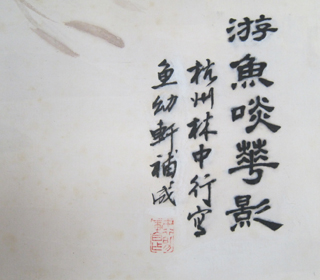 游魚啖華影
杭州林中行寫
魚幼軒補成